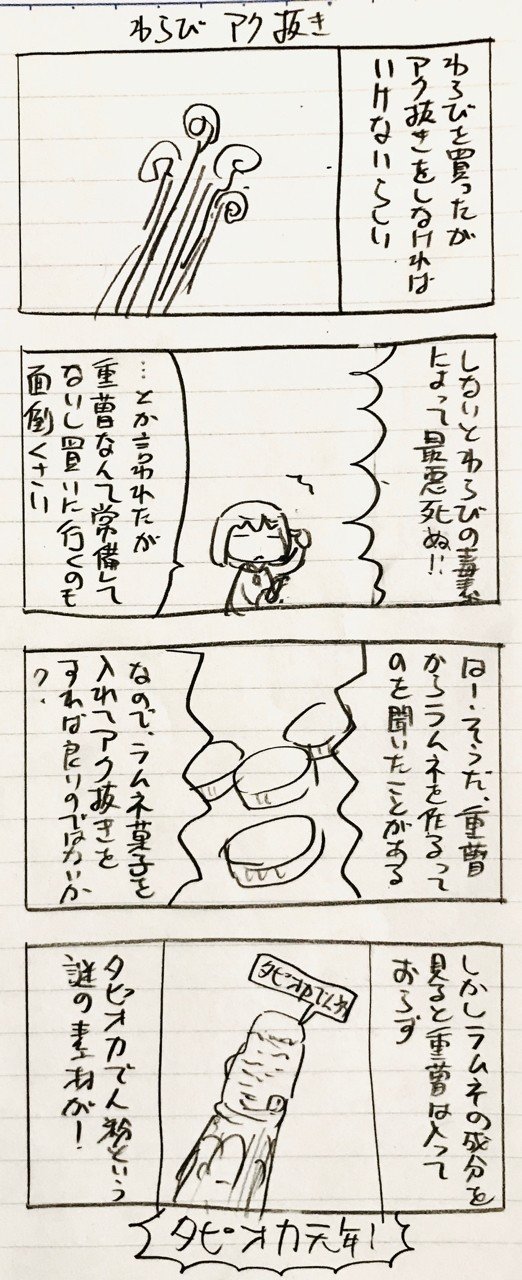 わらび アク抜き
わらびを買ったが
アク抜きをしなければ
いけないらしい
しないとわらびの毒素
によって最悪死ぬ!!
…とか言われたが
重曹なんて常備して
ないし買いに行くのも
面倒くさい
はー、そうだ、重曹
からラムネを作るって
のを聞いたことがある
なので、ラムネ菓子を
入れてアク抜きを
すれば良いのではないか
?
しかしラムネの成分を
見ると重曹は入って
おらず
タピオカでん粉
タピオカでん粉という
謎の素材が!
タピオカ元年!